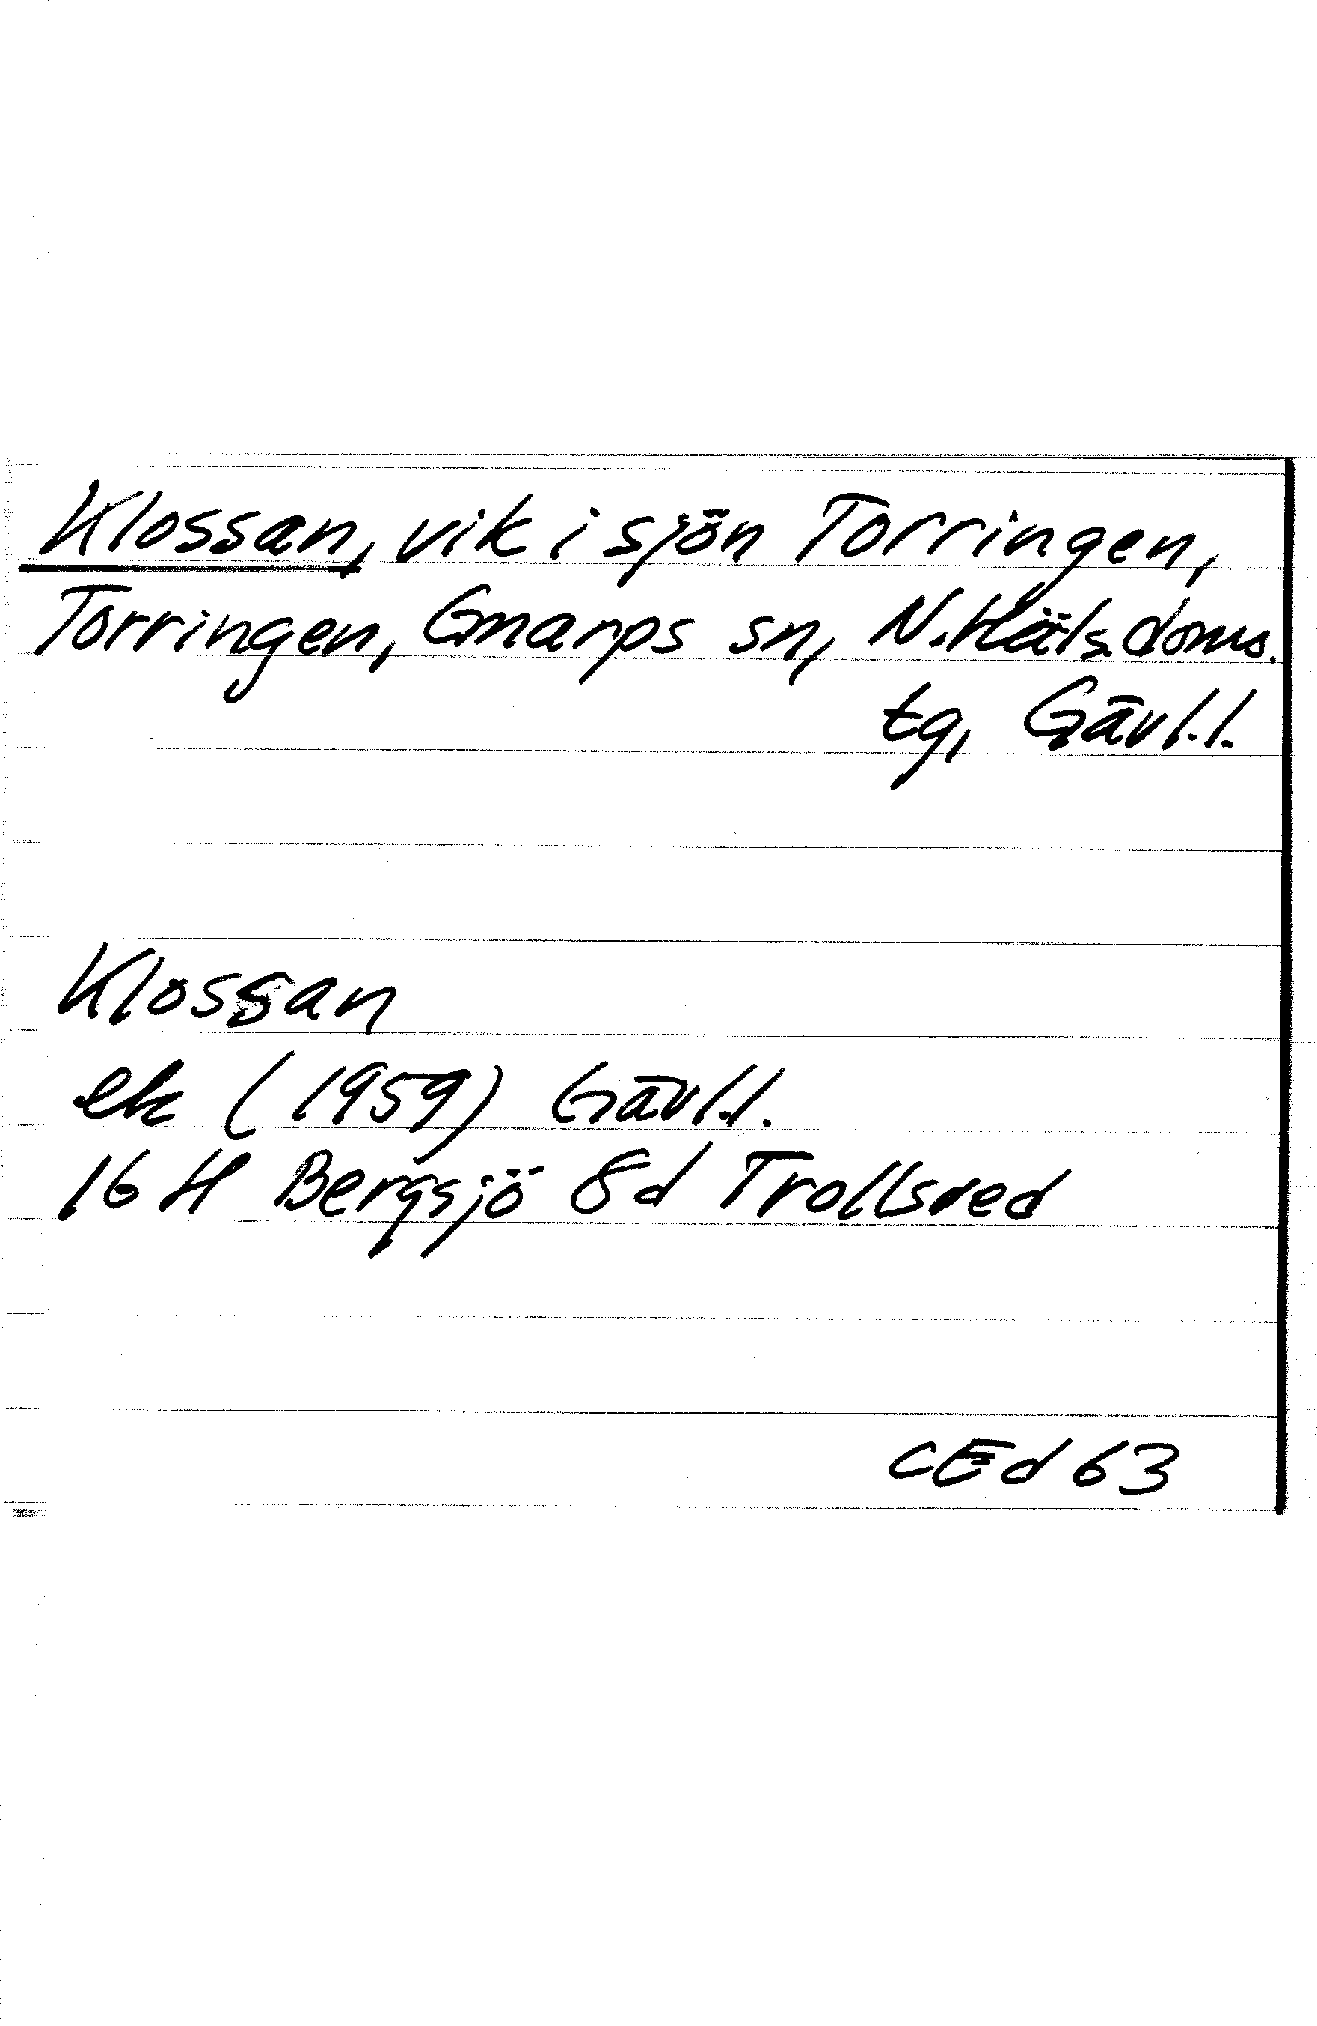 Klossan, vik i sjön Torringen,
Torringen, Gnarps sn, N. Häls. doms.
tg, Gävl.l.
Klossan
ek (1959) Gävl.l.
16 H Bergsjö 8d Trollsved
CEd 63